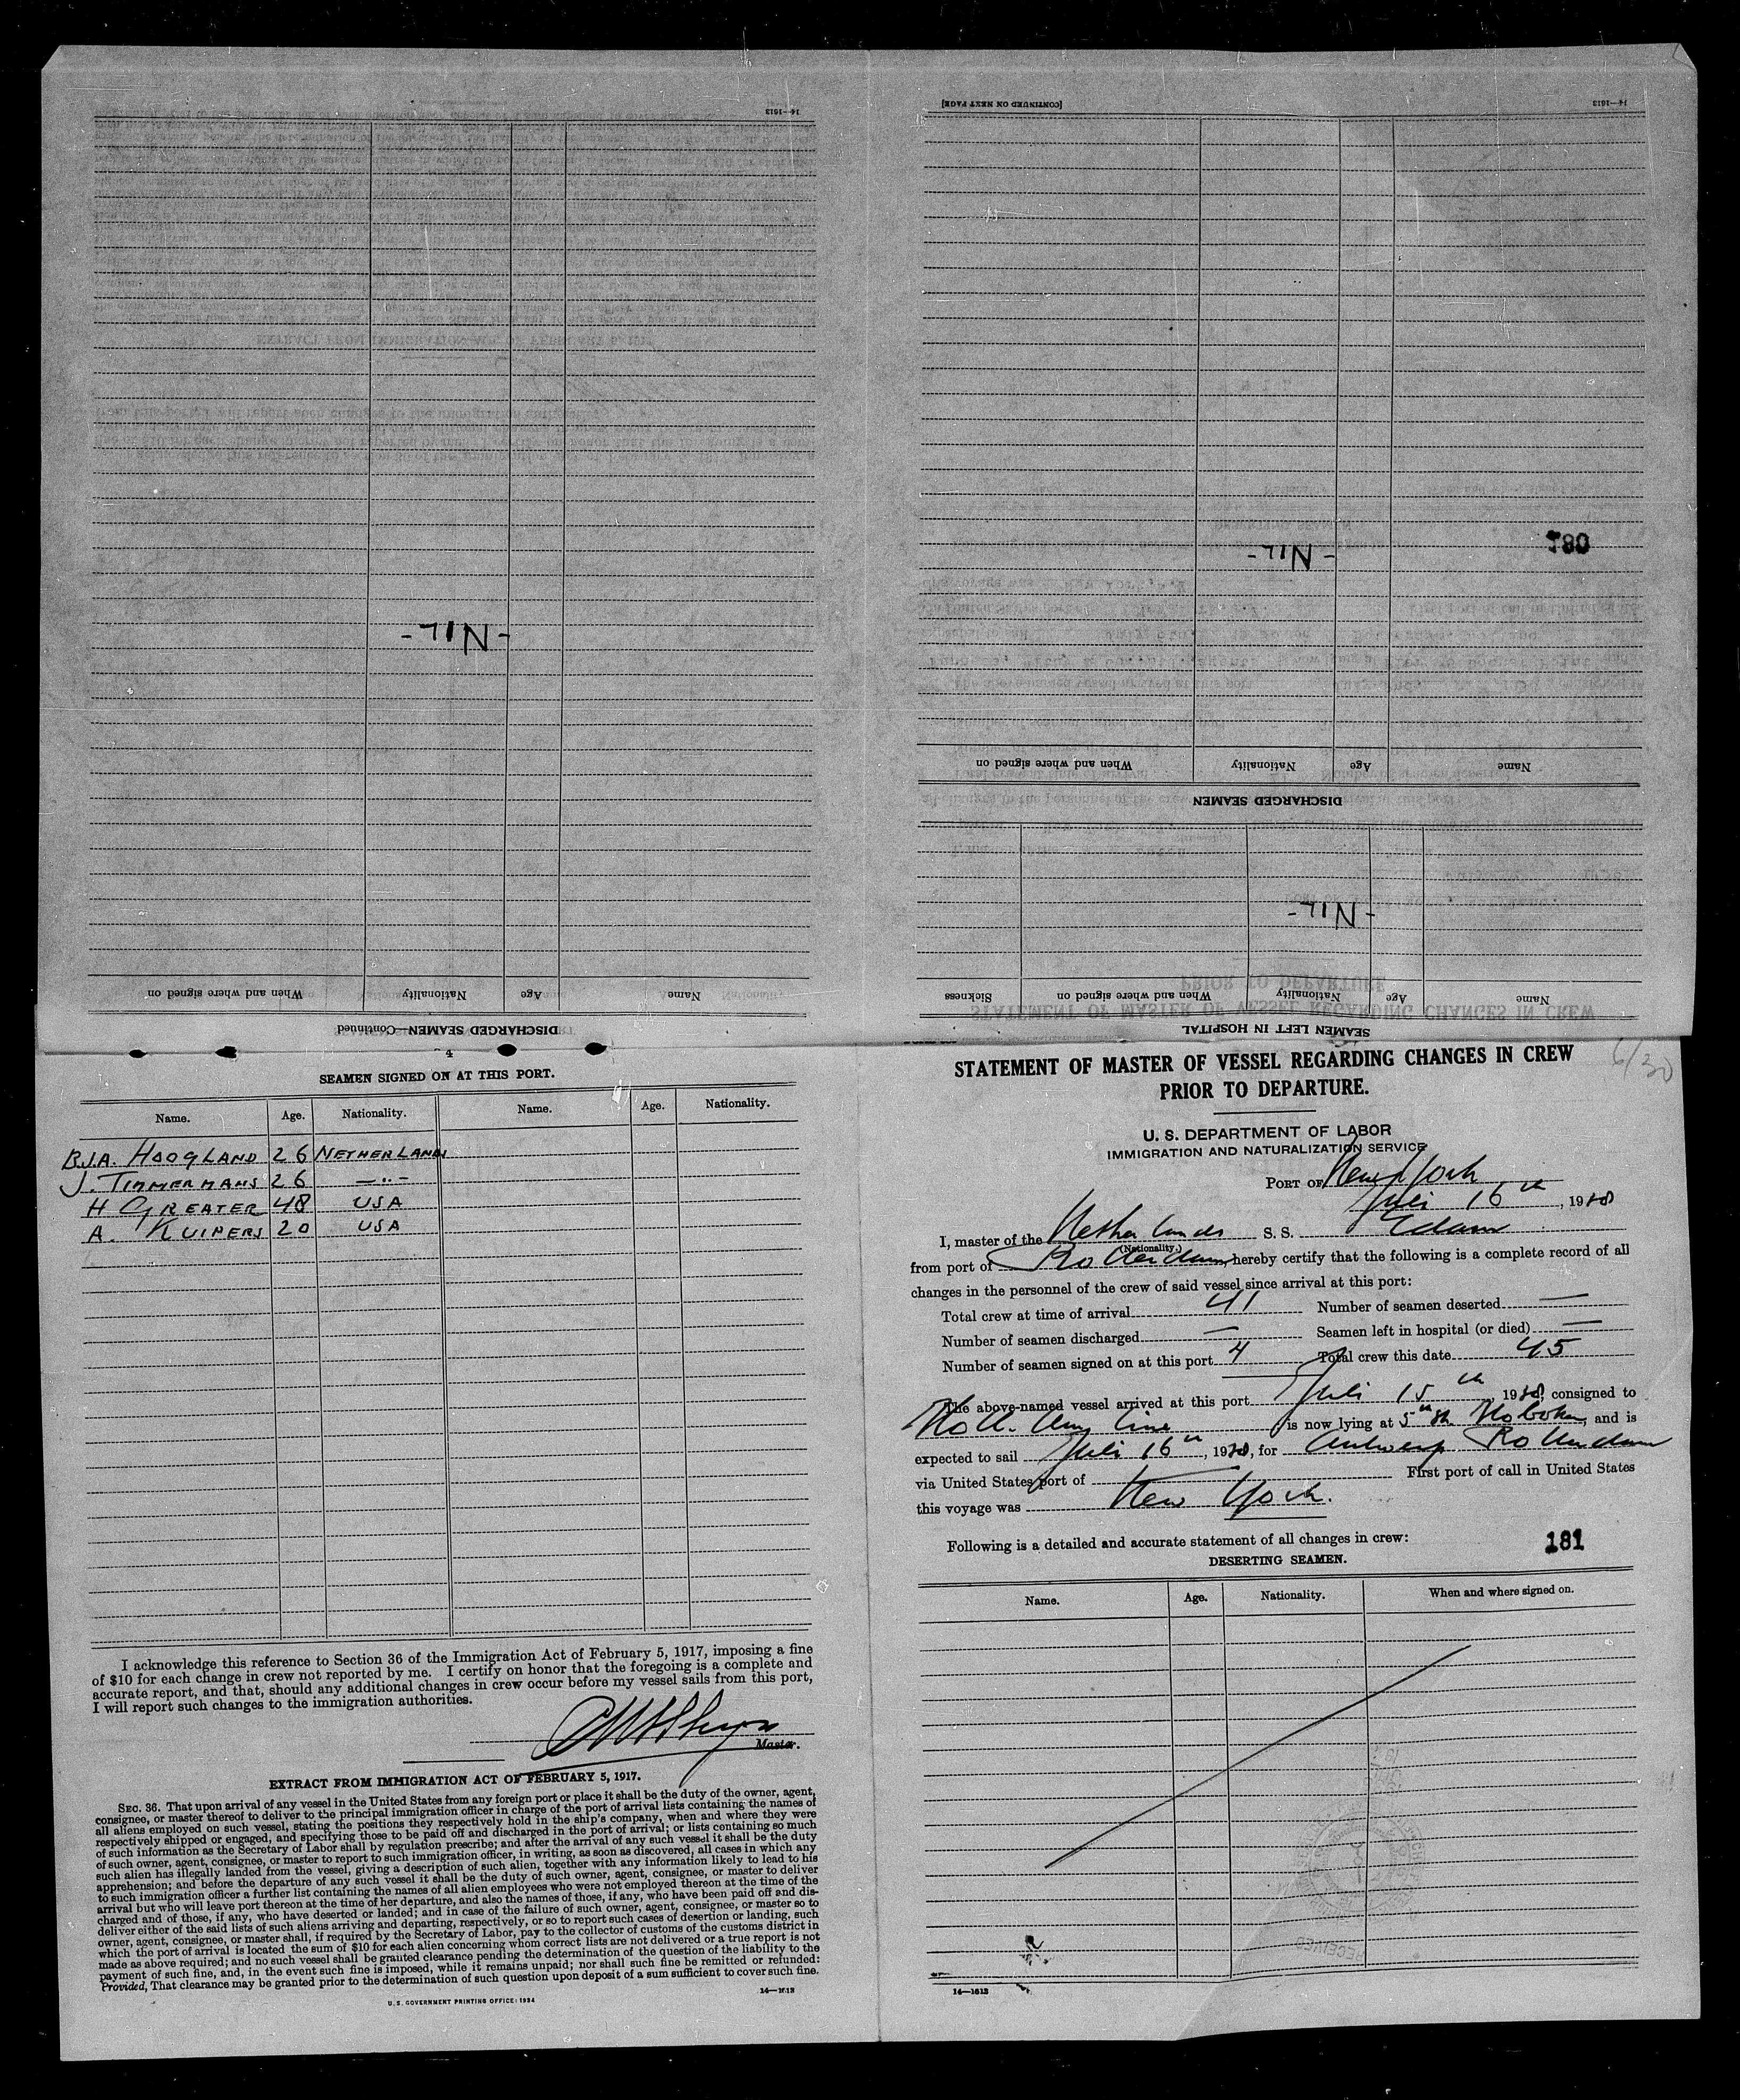 14—1613
[CONTINUED ON NEXT PAGE]
14—1613
-NIL-
180
-NIL-
Name Age Nationality When and where signed on
DISCHARGED SEAMEN
-NIL-
Name Age Nationality When and where signed on Sickness
SEAMEN LEFT IN HOSPITAL
Name Age Nationality When and where signed on
DISCHARGED SEAMEN—Continued
4
SEAMEN SIGNED ON AT THIS PORT.
Name. Age. Nationality. Name. Age. Nationality.
B.J.A. HOOGLAND 26 NETHERLANDS
J. TIMMERMANS 26 —„—
H GREATER 48 USA
A. KUIPERS 20 USA
I acknowledge this reference to Section 36 of the Immigration Act of February 5, 1917, imposing a fine
of $10 for each change in crew not reported by me. I certify on honor that the foregoing is a complete and
accurate report, and that, should any additional changes in crew occur before my vessel sails from this port,
I will report such changes to the immigration authorities.
Master.
EXTRACT FROM IMMIGRATION ACT OF FEBRUARY 5, 1917.
SEC. 36. That upon arrival of any vessel in the United States from any foreign port or place it shall be the duty of the owner, agent,
consignee, or master thereof to deliver to the principal immigration officer in charge of the port of arrival lists containing the names of
all aliens employed on such vessel, stating the positions they respectively hold in the ship's company, when and where they were
respectively shipped or engaged, and specifying those to be paid off and discharged in the port of arrival; or lists containing so much
of such information as the Secretary of Labor shall by regulation prescribe; and after the arrival of any such vessel it shall be the duty
of such owner, agent, consignee, or master to report to such immigration officer, in writing, as soon as discovered, all cases in which any
such alien has illegally landed from the vessel, giving a description of such alien, together with any information likely to lead to his
apprehension; and before the departure of any such vessel it shall be the duty of such owner, agent, consignee, or master to deliver
to such immigration officer a further list containing the names of all alien employees who were not employed thereon at the time of the
arrival but who will leave port thereon at the time of her departure, and also the names of those, if any, who have been paid off and dis-
charged and of those, if any, who have deserted or landed; and in case of the failure of such owner, agent, consignee, or master so to
deliver either of the said lists of such aliens arriving and departing, respectively, or so to report such cases of desertion or landing, such
owner, agent, consignee, or master shall, if required by the Secretary of Labor, pay to the collector of customs of the customs district in
which the port of arrival is located the sum of $10 for each alien concerning whom correct lists are not delivered or a true report is not
made as above required; and no such vessel shall be granted clearance pending the determination of the question of the liability to the
payment of such fine, and, in the event such fine is imposed, while it remains unpaid; nor shall such fine be remitted or refunded:
Provided, That clearance may be granted prior to the determination of such question upon deposit of a sum sufficient to cover such fine.
U. S. GOVERNMENT PRINTING OFFICE: 1934
14—1613
6/30
STATEMENT OF MASTER OF VESSEL REGARDING CHANGES IN CREW
PRIOR TO DEPARTURE.
U. S. DEPARTMENT OF LABOR
IMMIGRATION AND NATURALIZATION SERVICE
PORT OF New York
Juli 16th, 1938
I, master of the Netherlands S. S. Edam
(Nationality.)
from port of Rotterdam, hereby certify that the following is a complete record of all
changes in the personnel of the crew of said vessel since arrival at this port:
Total crew at time of arrival 41 Number of seamen deserted —
Number of seamen discharged — Seamen left in hospital (or died) —
Number of seamen signed on at this port 4 Total crew this date 45
The above-named vessel arrived at this port Juli 15th, 1938, consigned to
Holl. Am. Line is now lying at 5th St. Hoboken, and is
expected to sail Juli 16th, 1938, for Antwerp Rotterdam
via United States port of — First port of call in United States
this voyage was New York.
Following is a detailed and accurate statement of all changes in crew:
181
DESERTING SEAMEN.
Name. Age. Nationality. When and where signed on.
RECEIVED
14—1613